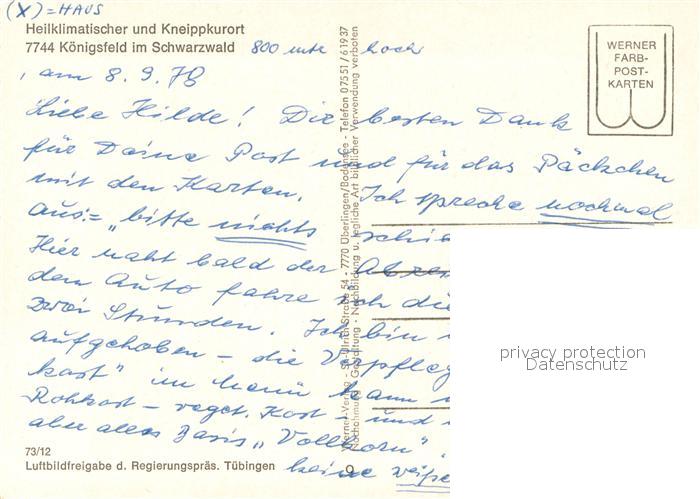 (X) = HAUS
Heilklimatischer und Kneippkurort
7744 Königsfeld im Schwarzwald 800 mtr hoch
am 8.9.78
Liebe Hilde! Dir besten Dank
für Deine Post und für das Päckchen
mit den Karten. Ich spreche nochmal
aus: = "bitte nichts schi
Hier naht bald der
dem Auto fahre ich die
zwei Stunden. Ich bin
aufgehoben - die Verpfleg
kost" im Menü kann
Rohkost - veget. Kost - und
aber alles Basis "Vollkorn"
keine weiße
73/12
Luftbildfreigabe d. Regierungspräs. Tübingen
9
Werner-Verlag - St.-Ulrich-Straße 54 - 7770 Überlingen/Bodensee - Telefon 07551/61937
Nachahmung der Gestaltung - Nachbildung u. jegliche Art bildlicher Verwendung verboten
WERNER
FARB-
POST-
KARTEN
privacy protection
Datenschutz